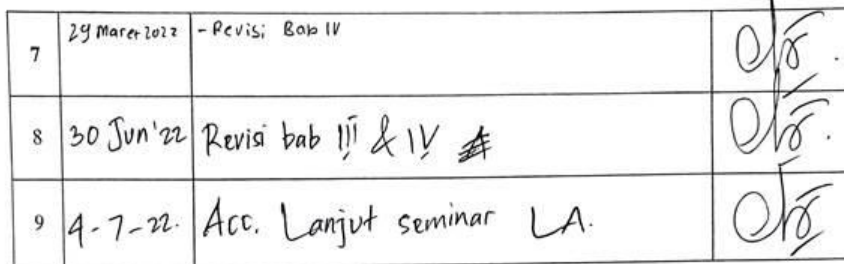 7 29 Maret 2022 - Revisi Bab IV
8 30 Jun'22 Revisi bab III & IV
9 4-7-22. Acc. Lanjut seminar LA.